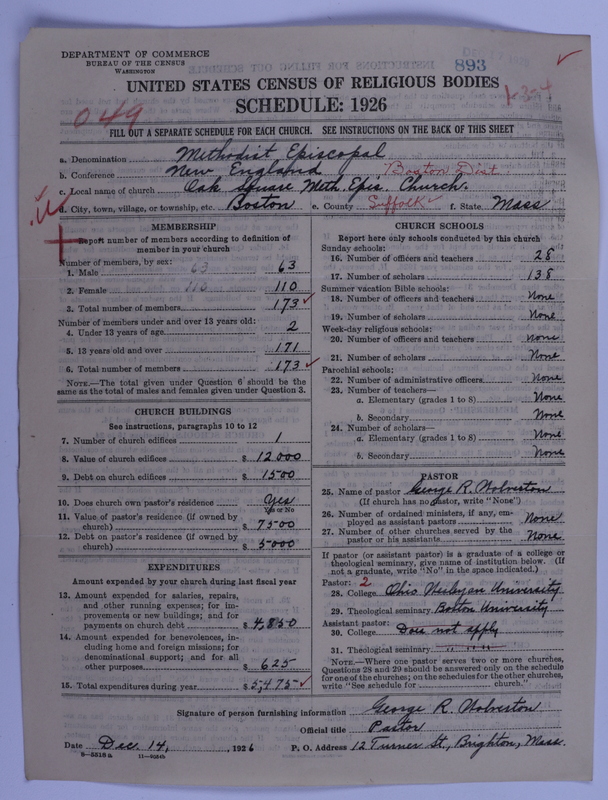 DEPARTMENT OF COMMERCE
BUREAU OF THE CENSUS
WASHINGTON
893
UNITED STATES CENSUS OF RELIGIOUS BODIES
SCHEDULE: 1926
049
FILL OUT A SEPARATE SCHEDULE FOR EACH CHURCH. SEE INSTRUCTIONS ON THE BACK OF THIS SHEET
a. Denomination Methodist Episcopal
b. Conference New England Boston Dist
c. Local name of church Oak Square Meth. Epis. Church.
d. City, town, village, or township, etc. Boston e. County Suffolk f. State Mass
MEMBERSHIP
Report number of members according to definition of
member in your church
Number of members, by sex:
1. Male 63 63
2. Female 110 110
3. Total number of members 173
Number of members under and over 13 years old:
4. Under 13 years of age 2
5. 13 years old and over 171
6. Total number of members 173
NOTE.—The total given under Question 6 should be the
same as the total of males and females given under Question 3.
CHURCH BUILDINGS
See instructions, paragraphs 10 to 12
7. Number of church edifices 1
8. Value of church edifices $ 12000
9. Debt on church edifices $ 1500
10. Does church own pastor's residence Yes
Yes or No
11. Value of pastor's residence (if owned by
church) $ 7500
12. Debt on pastor's residence (if owned by
church) $ 5000
EXPENDITURES
Amount expended by your church during last fiscal year
13. Amount expended for salaries, repairs,
and other running expenses; for im-
provements or new buildings; and for
payments on church debt $ 4,850
14. Amount expended for benevolences, in-
cluding home and foreign missions; for
denominational support; and for all
other purposes $ 625
15. Total expenditures during year $ 5,475
CHURCH SCHOOLS
Report here only schools conducted by this church
Sunday schools:
16. Number of officers and teachers 28
17. Number of scholars 138
Summer vacation Bible schools:
18. Number of officers and teachers None
19. Number of scholars None
Week-day religious schools:
20. Number of officers and teachers None
21. Number of scholars None
Parochial schools:
22. Number of administrative officers None
23. Number of teachers—
a. Elementary (grades 1 to 8) None
b. Secondary None
24. Number of scholars—
a. Elementary (grades 1 to 8) None
b. Secondary None
PASTOR
25. Name of pastor George R. Wolverton
(If church has no pastor, write "None")
26. Number of ordained ministers, if any, em-
ployed as assistant pastors None
27. Number of other churches served by the
pastor or his assistants None
If pastor (or assistant pastor) is a graduate of a college or
theological seminary, give name of institution below. (If
not a graduate, write "No" in the space indicated.)
Pastor: 2
28. College Ohio Wesleyan University
29. Theological seminary Boston University
Assistant pastor:
30. College Does not apply
31. Theological seminary " " "
NOTE.—Where one pastor serves two or more churches,
Questions 28 and 29 should be answered only on the schedule
for one of the churches; on the schedules for the other churches,
write "See schedule for church."
Signature of person furnishing information George R. Wolverton
Official title Pastor
Date Dec. 14, 1926 P. O. Address 12 Turner St., Brighton, Mass.